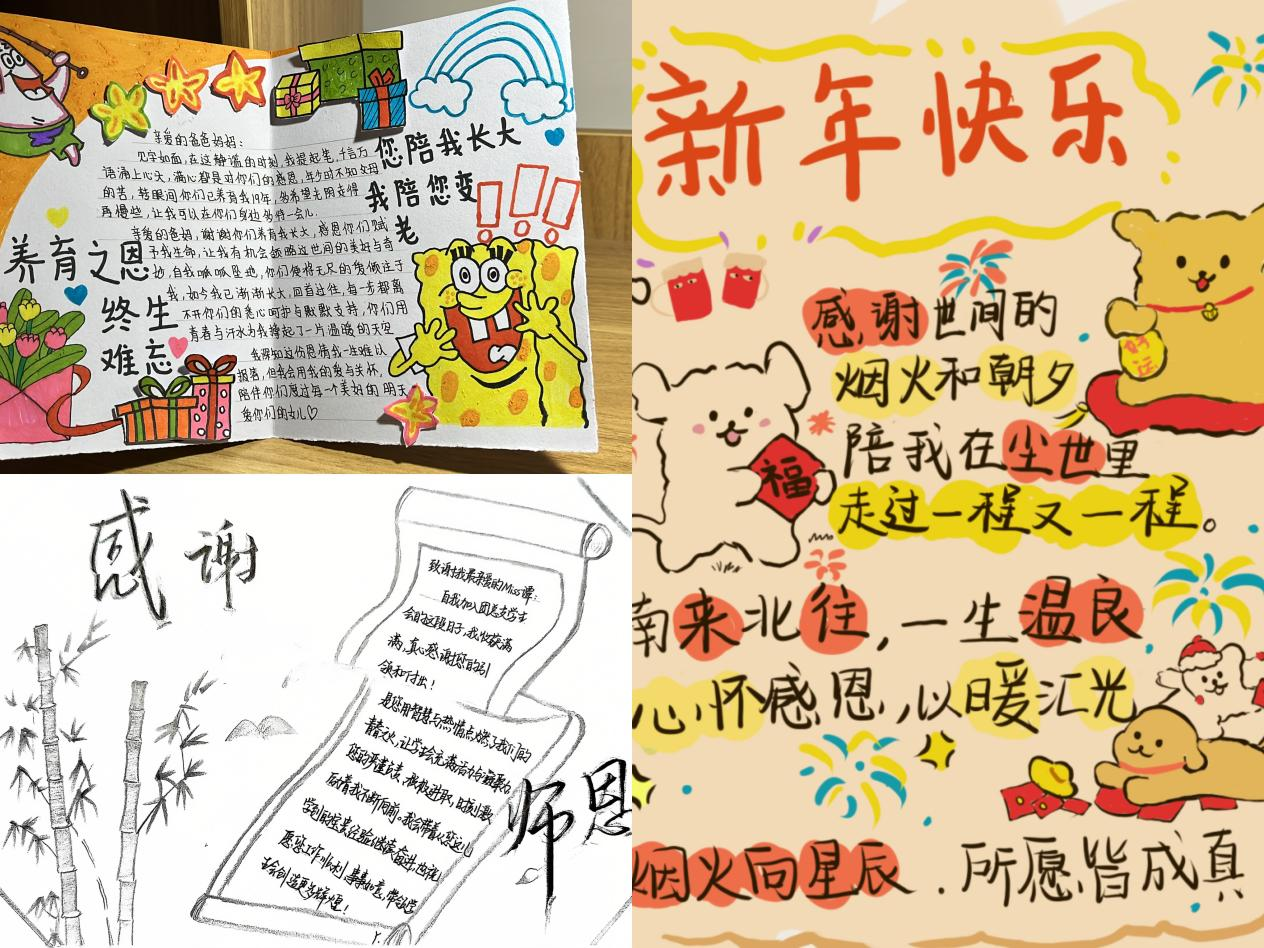 亲爱的爸爸妈妈：
见字如面，在这静谧的时刻，我提起笔，千言万
语涌上心头，满心都是对你们的感恩，年少时不知父母
的苦，转眼间你们已养育我19年，多希望光阴走得
再慢些，让我可以在你们身边多待一会儿.
亲爱的爸妈，谢谢你们养育我长大，感恩你们赋
予我生命，让我有机会领略这世间的美好与奇
妙，自我呱呱坠地，你们便将无尽的爱倾注于
我，如今我已渐渐长大，回首过往，每一步都离
不开你们的悉心呵护与默默支持，你们用
青春与汗水为我撑起了一片温暖的天空
我深知这份恩情我一生难以
报答，但我会用我的爱与关怀，
陪伴你们度过每一个美好的明天
爱你们的女儿♡
您陪我长大
我陪您变
老
养育之恩
终生
难忘
感谢
致谢我最亲爱的Miss谭：
自我加入团总支学生
会的这段日子，我收获满
满，真心感谢您的引
领和付出！
是您用智慧与热情点燃了我们的
青春之火，让学生会充满活力与凝聚力
您的严谨认真、积极进取，时刻激
励着我不断向前。我会带着从您这儿
学到的宝贵经验继续奋进，也祝
愿您工作顺利，事事如意，带领学
生会创造更多辉煌！
师恩
新年快乐
感谢世间的
烟火和朝夕
陪我在尘世里
走过一程又一程。
南来北往，一生温良
心怀感恩，以暖汇光
烟火向星辰．所愿皆成真
福
好运